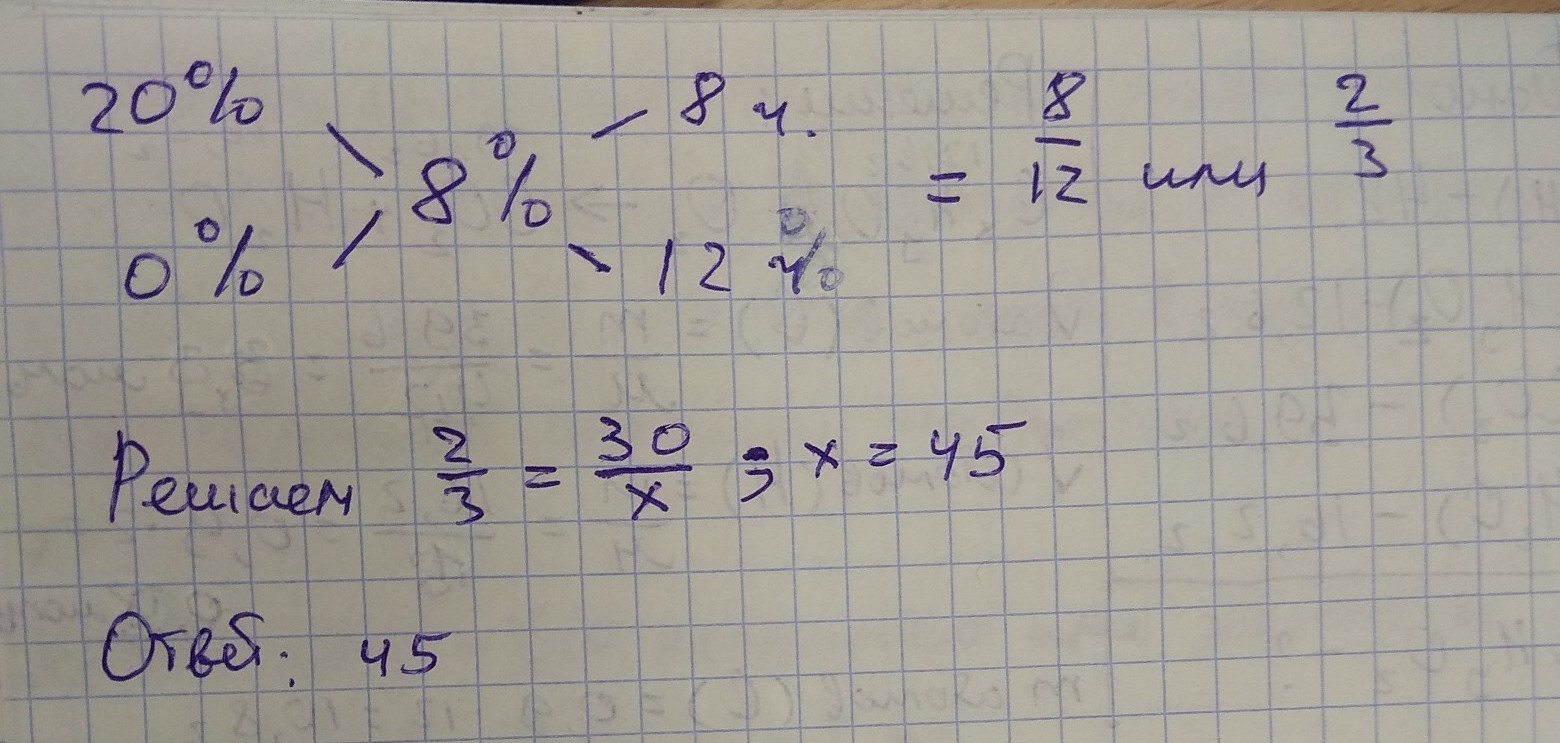 20% 8 ч. = 8/12 или 2/3
8%
0% 12 %
Решаем 2/3 = 30/x ; x = 45
Ответ: 45